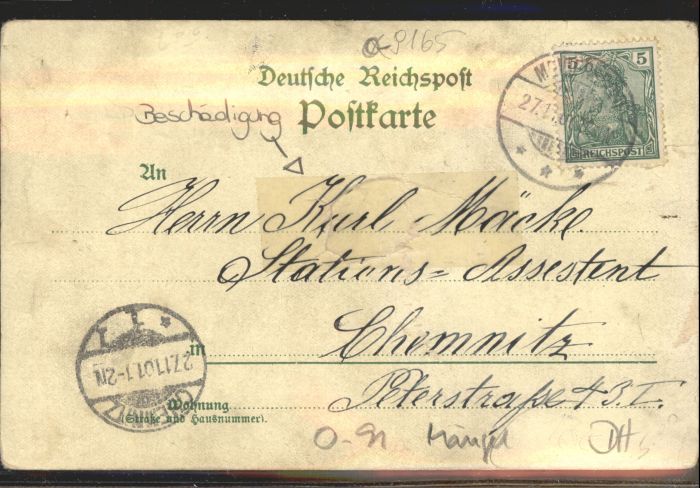 9165
Deutsche Reichspost
Postkarte
Beschädigung
5 5
REICHSPOST
27.11.
An
Herrn Karl Mäcke
Stations=Assestent
in Chemnitz
Peterstraße 43 I.
27.11.01.1-2N
CHEMNITZ
1 1
Wohnung
(Straße und Hausnummer).
0-91 Mängel